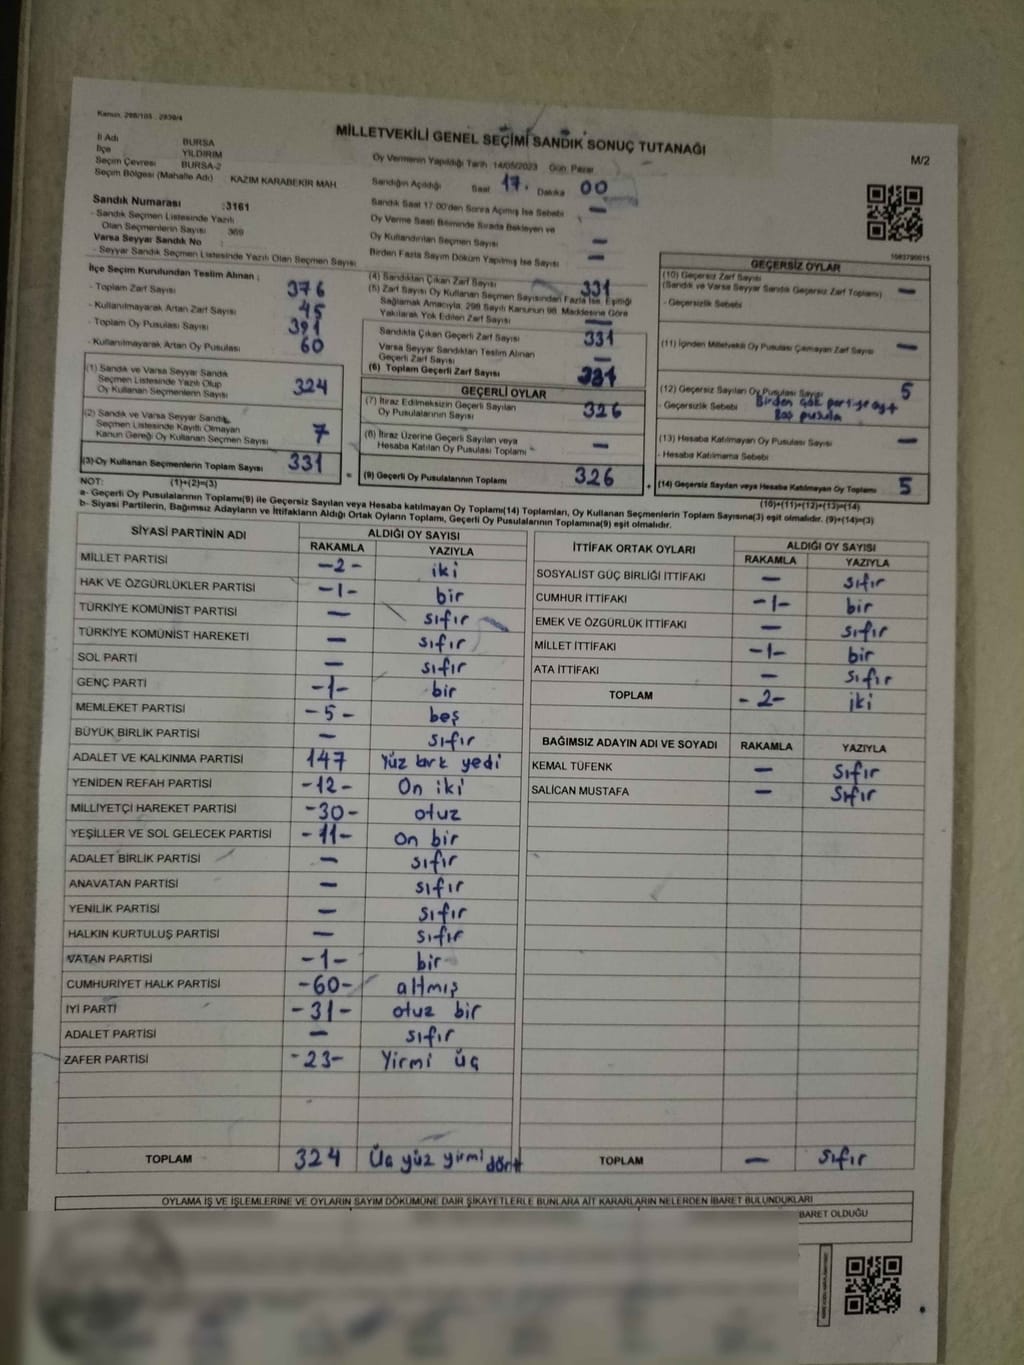 Kanun, 298/105 - 2839/4
MİLLETVEKİLİ GENEL SEÇİMİ SANDIK SONUÇ TUTANAĞI
M/2
İl Adı BURSA
İlçe YILDIRIM
Seçim Çevresi BURSA-2
Seçim Bölgesi (Mahalle Adı) : KAZIM KARABEKİR MAH.
Sandık Numarası :3161
- Sandık Seçmen Listesinde Yazılı
Olan Seçmenlerin Sayısı : 369
Varsa Seyyar Sandık No :
- Seyyar Sandık Seçmen Listesinde Yazılı Olan Seçmen Sayısı
Oy Vermenin Yapıldığı Tarih 14/05/2023 Gün: Pazar
Sandığın Açıldığı Saat 17. Dakika 00
Sandık Saat 17.00'den Sonra Açılmış İse Sebebi —
Oy Verme Saati Bitiminde Sırada Bekleyen ve
Oy Kullandırılan Seçmen Sayısı —
Birden Fazla Sayım Döküm Yapılmış İse Sayısı —
İlçe Seçim Kurulundan Teslim Alınan ;
- Toplam Zarf Sayısı 376
- Kullanılmayarak Artan Zarf Sayısı 45
- Toplam Oy Pusulası Sayısı 391
- Kullanılmayarak Artan Oy Pusulası 60
(1) Sandık ve Varsa Seyyar Sandık
Seçmen Listesinde Yazılı Olup
Oy Kullanan Seçmenlerin Sayısı 324
(2) Sandık ve Varsa Seyyar Sandık
Seçmen Listesinde Kayıtlı Olmayan
Kanun Gereği Oy Kullanan Seçmen Sayısı 7
(3) Oy Kullanan Seçmenlerin Toplam Sayısı 331
(4) Sandıktan Çıkan Zarf Sayısı 331
(5) Zarf Sayısı Oy Kullanan Seçmen Sayısından Fazla İse, Eşitliği
Sağlamak Amacıyla, 298 Sayılı Kanunun 98. Maddesine Göre
Yakılarak Yok Edilen Zarf Sayısı —
Sandıkta Çıkan Geçerli Zarf Sayısı 331
Varsa Seyyar Sandıktan Teslim Alınan
Geçerli Zarf Sayısı —
(6) Toplam Geçerli Zarf Sayısı 331
GEÇERLİ OYLAR
(7) İtiraz Edilmeksizin Geçerli Sayılan
Oy Pusulalarının Sayısı 326
(8) İtiraz Üzerine Geçerli Sayılan veya
Hesaba Katılan Oy Pusulası Toplamı —
= (9) Geçerli Oy Pusulalarının Toplamı 326
1083790015
GEÇERSİZ OYLAR
(10) Geçersiz Zarf Sayısı
(Sandık ve Varsa Seyyar Sandık Geçersiz Zarf Toplamı) —
- Geçersizlik Sebebi
(11) İçinden Milletvekili Oy Pusulası Çıkmayan Zarf Sayısı —
(12) Geçersiz Sayılan Oy Pusulası Sayısı 5
- Geçersizlik Sebebi Birden çok partiye ayt
Boş pusula
(13) Hesaba Katılmayan Oy Pusulası Sayısı —
- Hesaba Katılmama Sebebi
+ (14) Geçersiz Sayılan veya Hesaba Katılmayan Oy Toplamı 5
NOT: (1)+(2)=(3) (10)+(11)+(12)+(13)=(14)
a- Geçerli Oy Pusulalarının Toplamı(9) ile Geçersiz Sayılan veya Hesaba katılmayan Oy Toplamı(14) Toplamları, Oy Kullanan Seçmenlerin Toplam Sayısına(3) eşit olmalıdır. (9)+(14)=(3)
b- Siyasi Partilerin, Bağımsız Adayların ve İttifakların Aldığı Ortak Oyların Toplamı, Geçerli Oy Pusulalarının Toplamına(9) eşit olmalıdır.
SİYASİ PARTİNİN ADI ALDIĞI OY SAYISI
RAKAMLA YAZIYLA
MİLLET PARTİSİ -2- iki
HAK VE ÖZGÜRLÜKLER PARTİSİ -1- bir
TÜRKİYE KOMÜNİST PARTİSİ — sıfır
TÜRKİYE KOMÜNİST HAREKETİ — sıfır
SOL PARTİ — sıfır
GENÇ PARTİ -1- bir
MEMLEKET PARTİSİ -5- beş
BÜYÜK BİRLİK PARTİSİ — sıfır
ADALET VE KALKINMA PARTİSİ 147 Yüz kırk yedi
YENİDEN REFAH PARTİSİ -12- On iki
MİLLİYETÇİ HAREKET PARTİSİ -30- otuz
YEŞİLLER VE SOL GELECEK PARTİSİ -11- on bir
ADALET BİRLİK PARTİSİ — sıfır
ANAVATAN PARTİSİ — sıfır
YENİLİK PARTİSİ — sıfır
HALKIN KURTULUŞ PARTİSİ — sıfır
VATAN PARTİSİ -1- bir
CUMHURİYET HALK PARTİSİ -60- altmış
İYİ PARTİ -31- otuz bir
ADALET PARTİSİ — sıfır
ZAFER PARTİSİ -23- Yirmi üç
TOPLAM 324 Üç yüz yirmi dört
İTTİFAK ORTAK OYLARI ALDIĞI OY SAYISI
RAKAMLA YAZIYLA
SOSYALİST GÜÇ BİRLİĞİ İTTİFAKI — sıfır
CUMHUR İTTİFAKI -1- bir
EMEK VE ÖZGÜRLÜK İTTİFAKI — sıfır
MİLLET İTTİFAKI -1- bir
ATA İTTİFAKI — sıfır
TOPLAM -2- iki
BAĞIMSIZ ADAYIN ADI VE SOYADI RAKAMLA YAZIYLA
KEMAL TÜFENK — sıfır
SALİCAN MUSTAFA — sıfır
TOPLAM — sıfır
OYLAMA İŞ VE İŞLEMLERİNE VE OYLARIN SAYIM DÖKÜMÜNE DAİR ŞİKAYETLERLE BUNLARA AİT KARARLARIN NELERDEN İBARET BULUNDUKLARI
BARET OLDUĞU